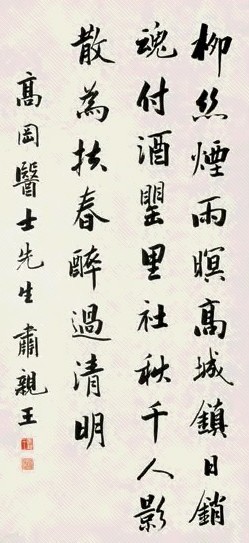 柳絲煙雨暝高城鎮日銷
魂付酒罌里社秋千人影
散為扶春醉過清明
高岡醫士先生 肅親王